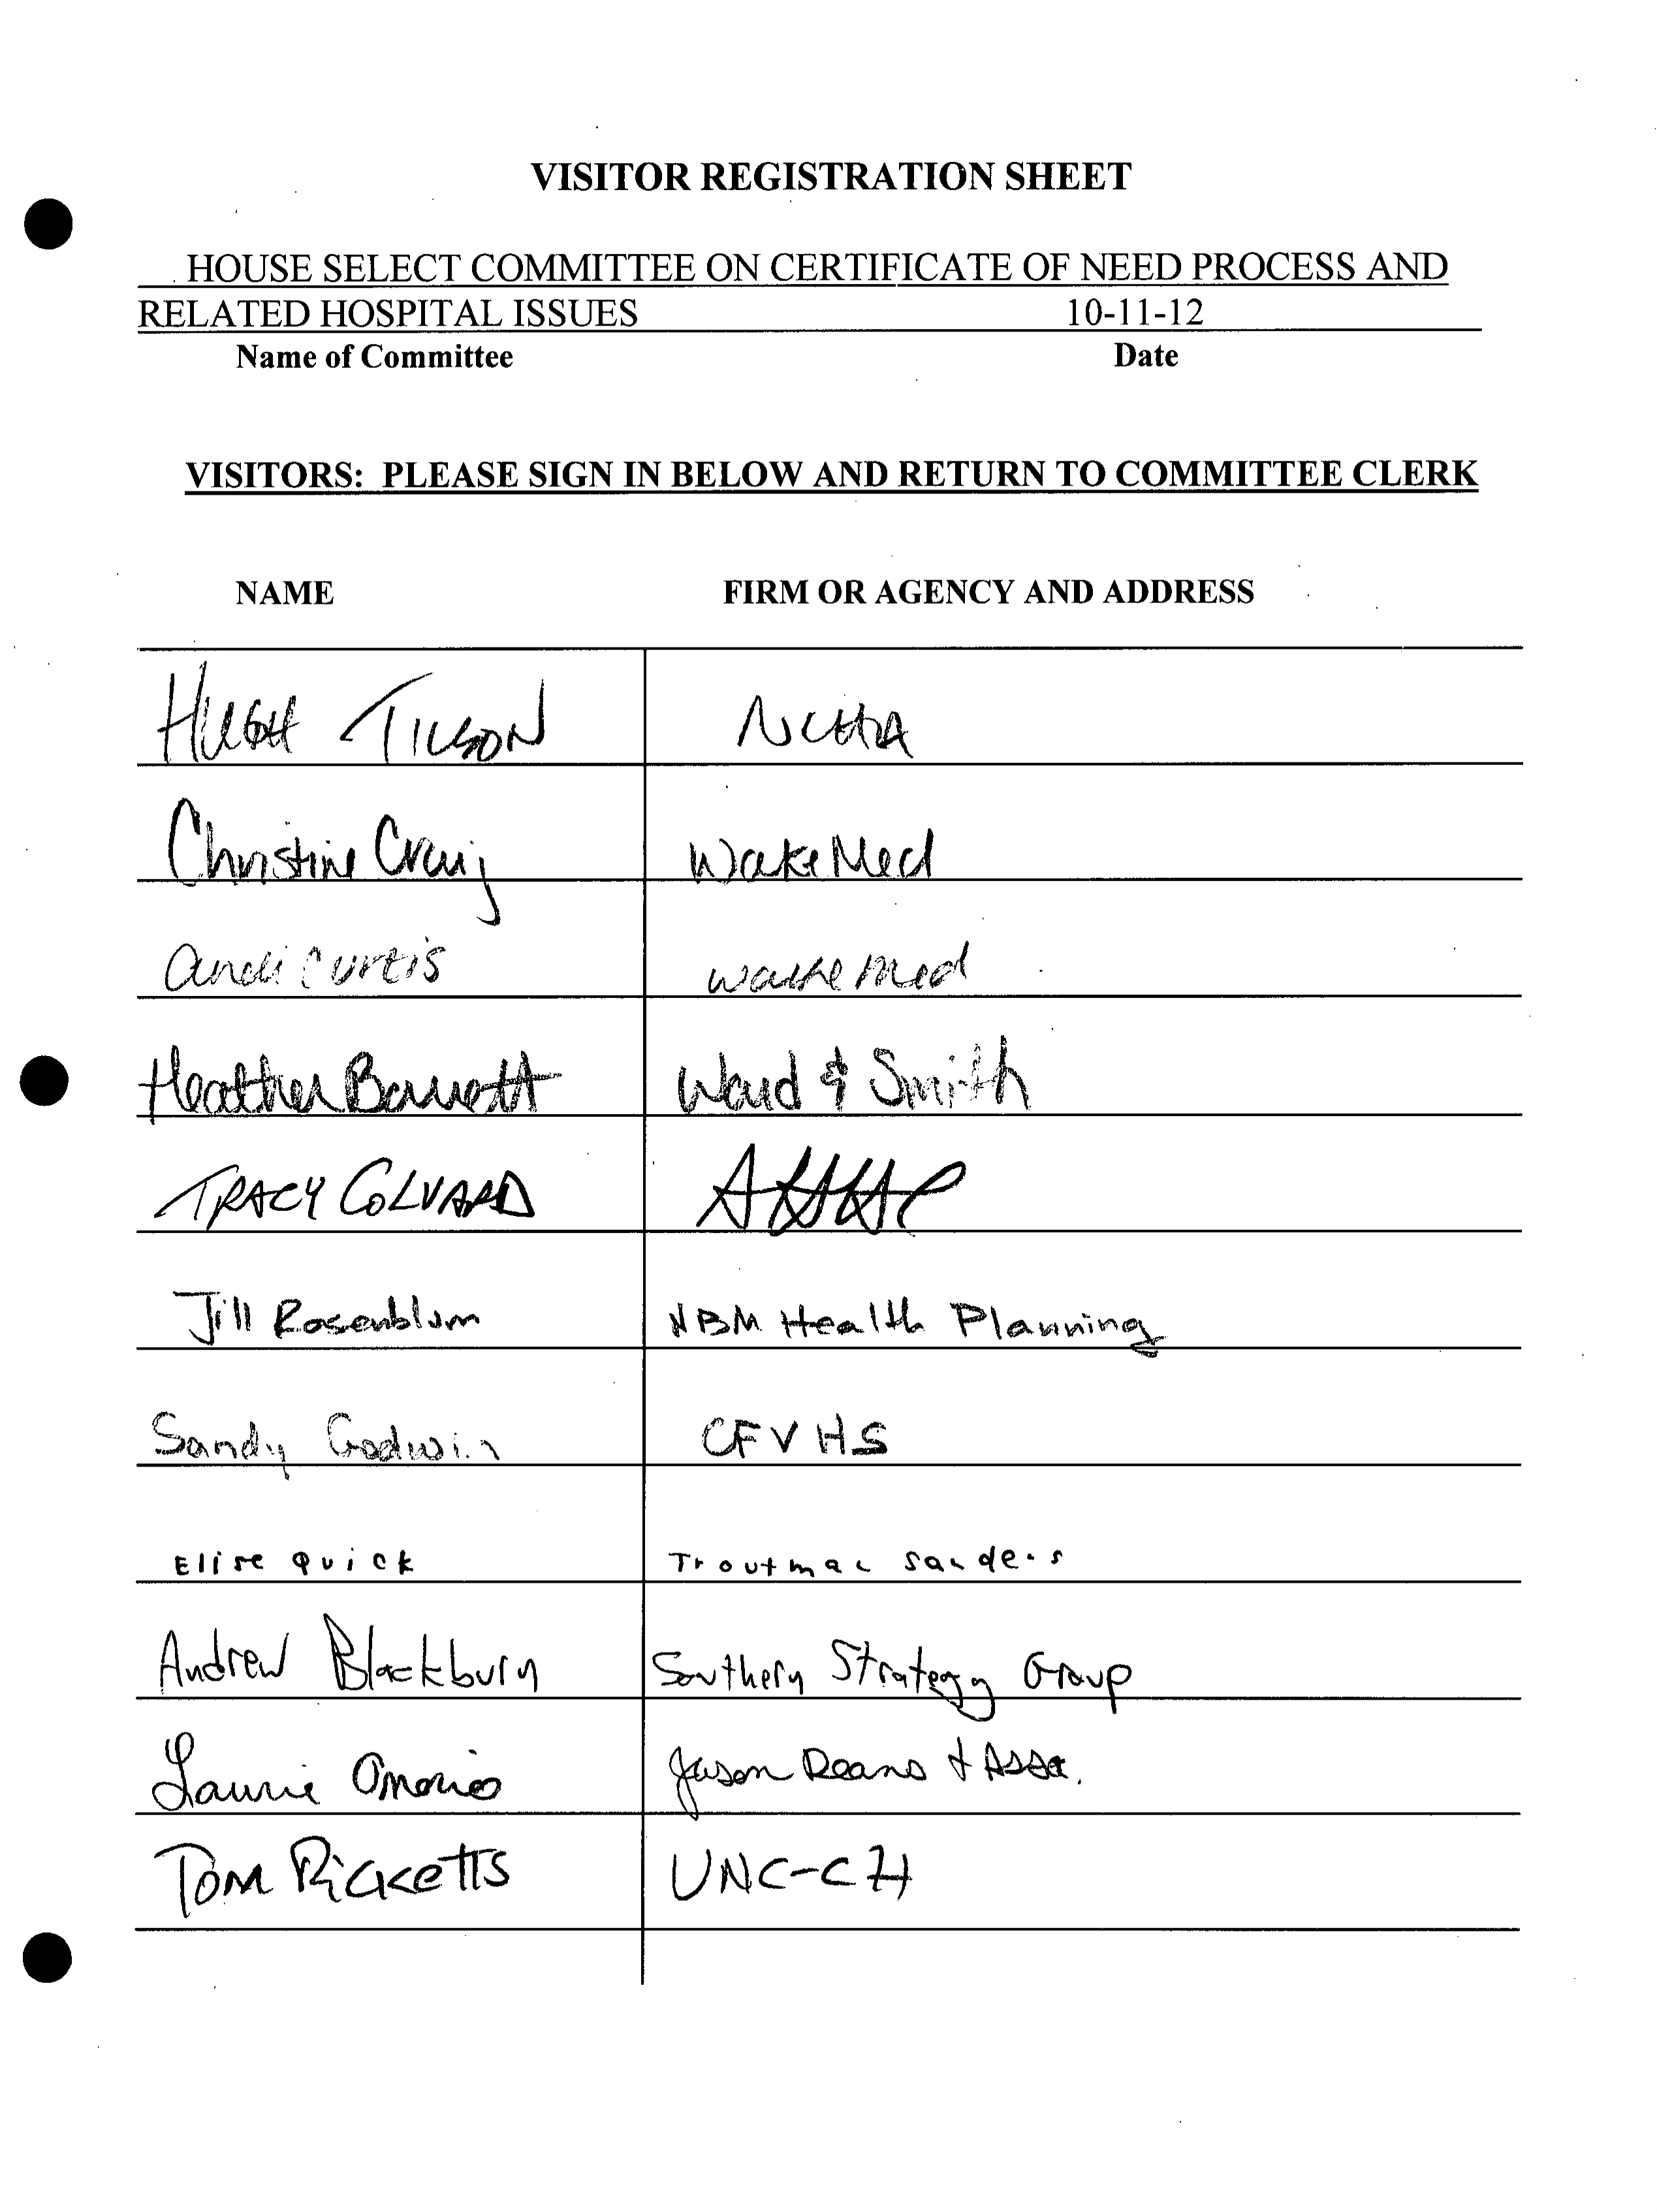 VISITOR REGISTRATION SHEET
HOUSE SELECT COMMITTEE ON CERTIFICATE OF NEED PROCESS AND
RELATED HOSPITAL ISSUES 10-11-12
Name of Committee Date
VISITORS: PLEASE SIGN IN BELOW AND RETURN TO COMMITTEE CLERK
NAME FIRM OR AGENCY AND ADDRESS
HUGH TILSON NCHA
Christine Craig WakeMed
Andi Curtis WakeMed
Heather Barrett Ward & Smith
TRACY COLVARD AHHC
Jill Rosenblum NBM Health Planning
Sandy Godwin CFVHS
Elise Quick Troutman Sanders
Andrew Blackburn Southern Strategy Group
Laurie Onorio Jason Deans + Assc.
Tom Ricketts UNC-CH